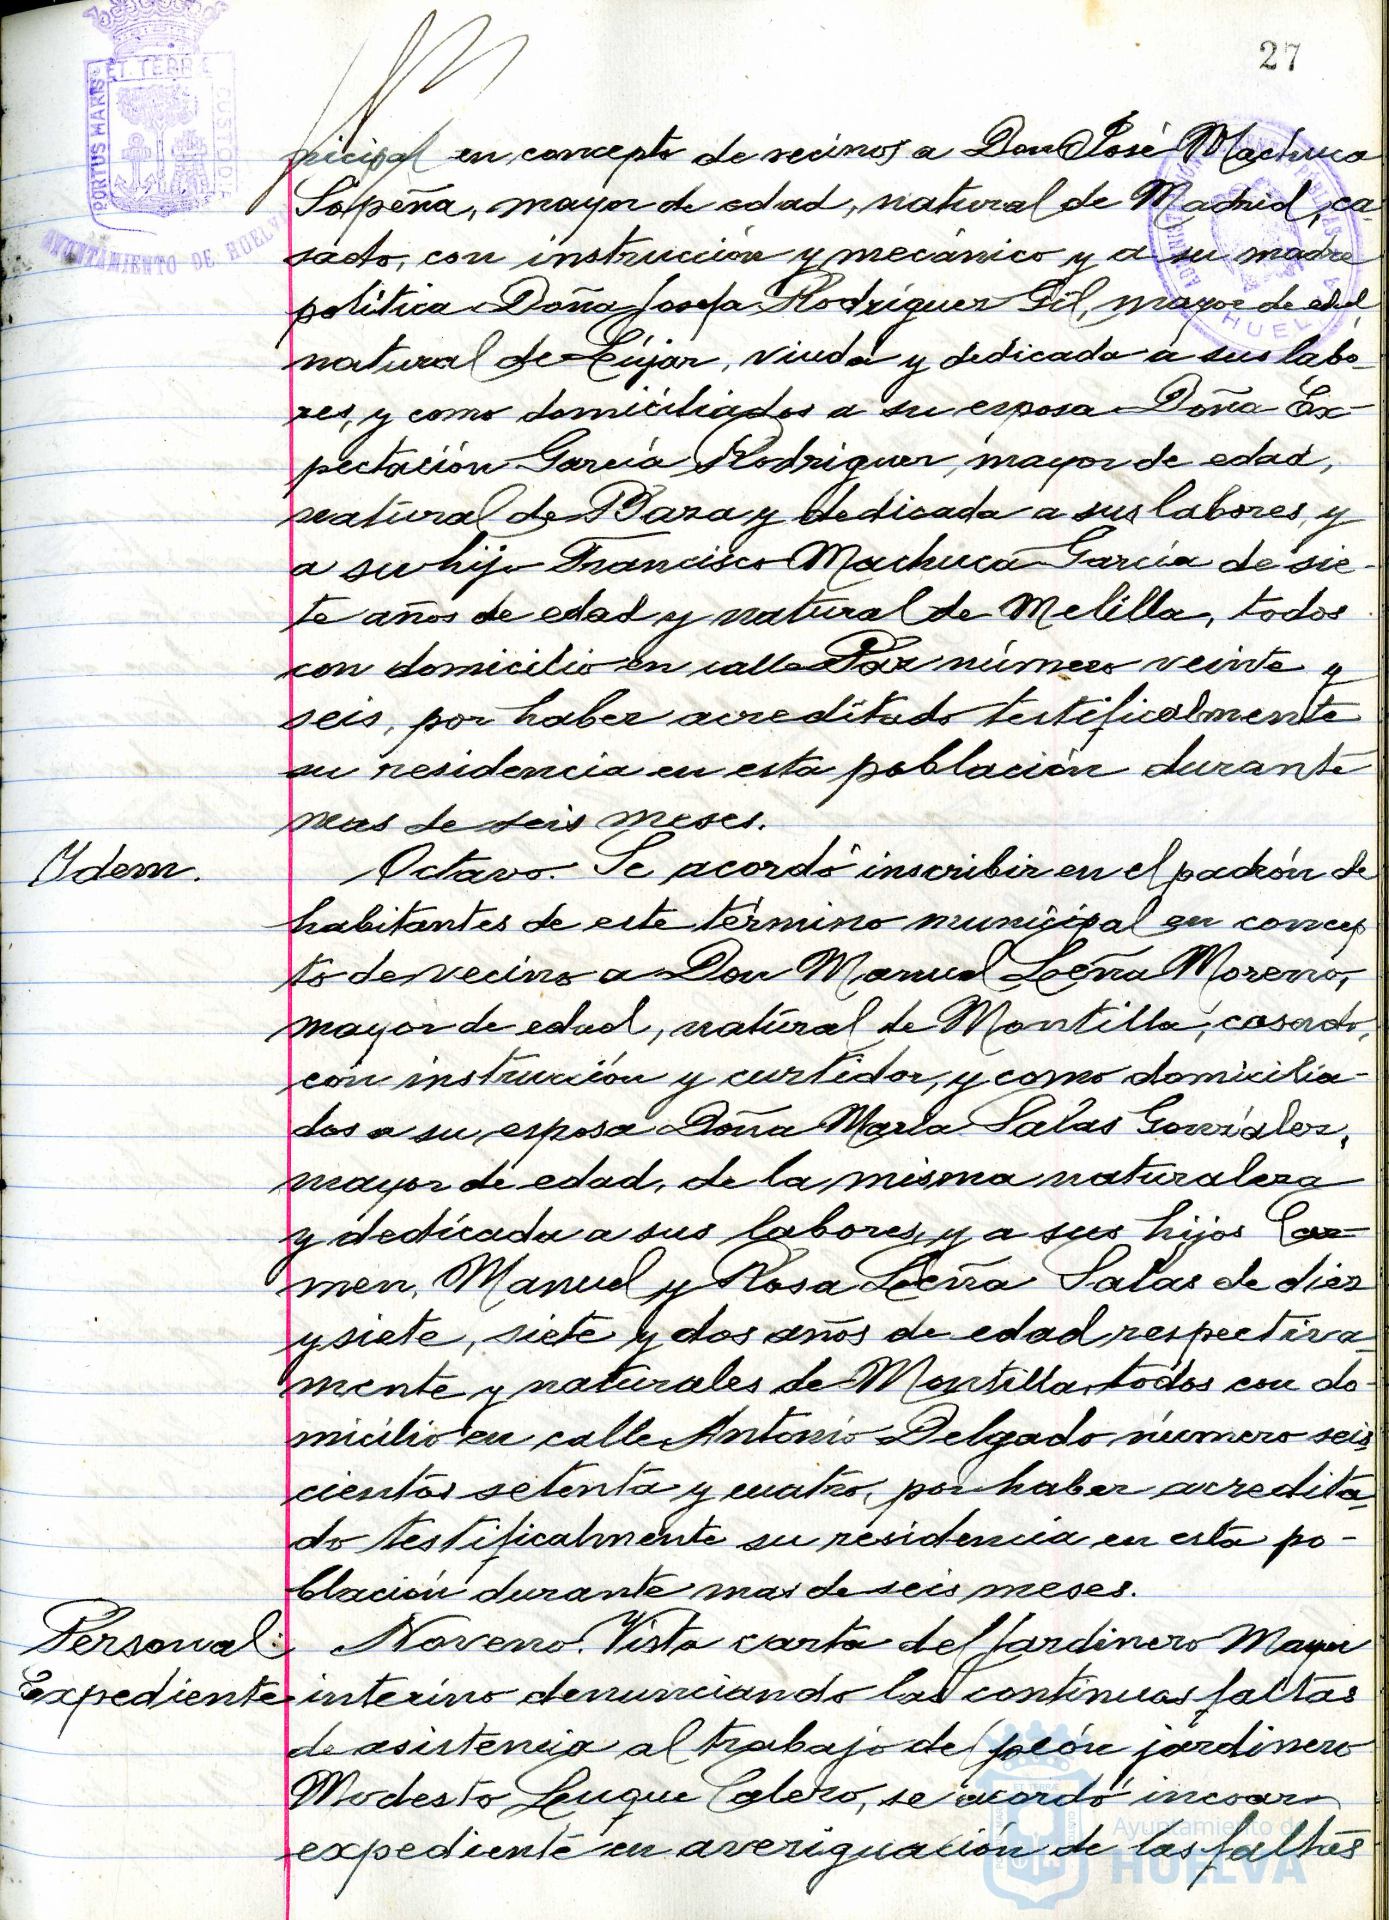 27
PORTUS MARIS ET TERRÆ CUSTODIA
AYUNTAMIENTO DE HUELVA
HUELVA
nicipal en concepto de vecinos a Don José Machuca
Sapeña, mayor de edad, natural de Madrid, ca-
sado, con instrucción y mecánico y a su madre
política Doña Josefa Rodríguez Gil, mayor de edad,
natural de Lújar, viuda y dedicada a sus labo-
res, y como domiciliados a su esposa Doña Ex-
pectación García Rodríguez, mayor de edad,
natural de Baza y dedicada a sus labores, y
a su hijo Francisco Machuca García de sie-
te años de edad y natural de Melilla, todos
con domicilio en calle Paz número veinte y
seis, por haber acreditado testificalmente
su residencia en esta población durante
mas de seis meses.
Ydem.
Octavo. Se acordó inscribir en el padrón de
habitantes de este término municipal en concep
to de vecino a Don Manuel Leña Moreno,
mayor de edad, natural de Montilla, casado,
con instrucción y curtidor, y como domicilia-
dos a su esposa Doña María Salas González,
mayor de edad, de la misma naturaleza
y dedicada a sus labores, y a sus hijos Car-
men, Manuel y Rosa Leña Salas de diez
y siete, siete y dos años de edad respectiva-
mente y naturales de Montilla, todos con do-
micilio en calle Antonio Delgado número seis
cientos setenta y cuatro, por haber acredita-
do testificalmente su residencia en esta po-
blación durante mas de seis meses.
Personal:
Expediente
Noveno. Vista carta del Jardinero Mayor
interino denunciando las continuas faltas
de asistencia al trabajo del peón jardinero
Modesto Luque Calero, se acordó incoar
expediente en averiguación de las faltas
Ayuntamiento de
HUELVA